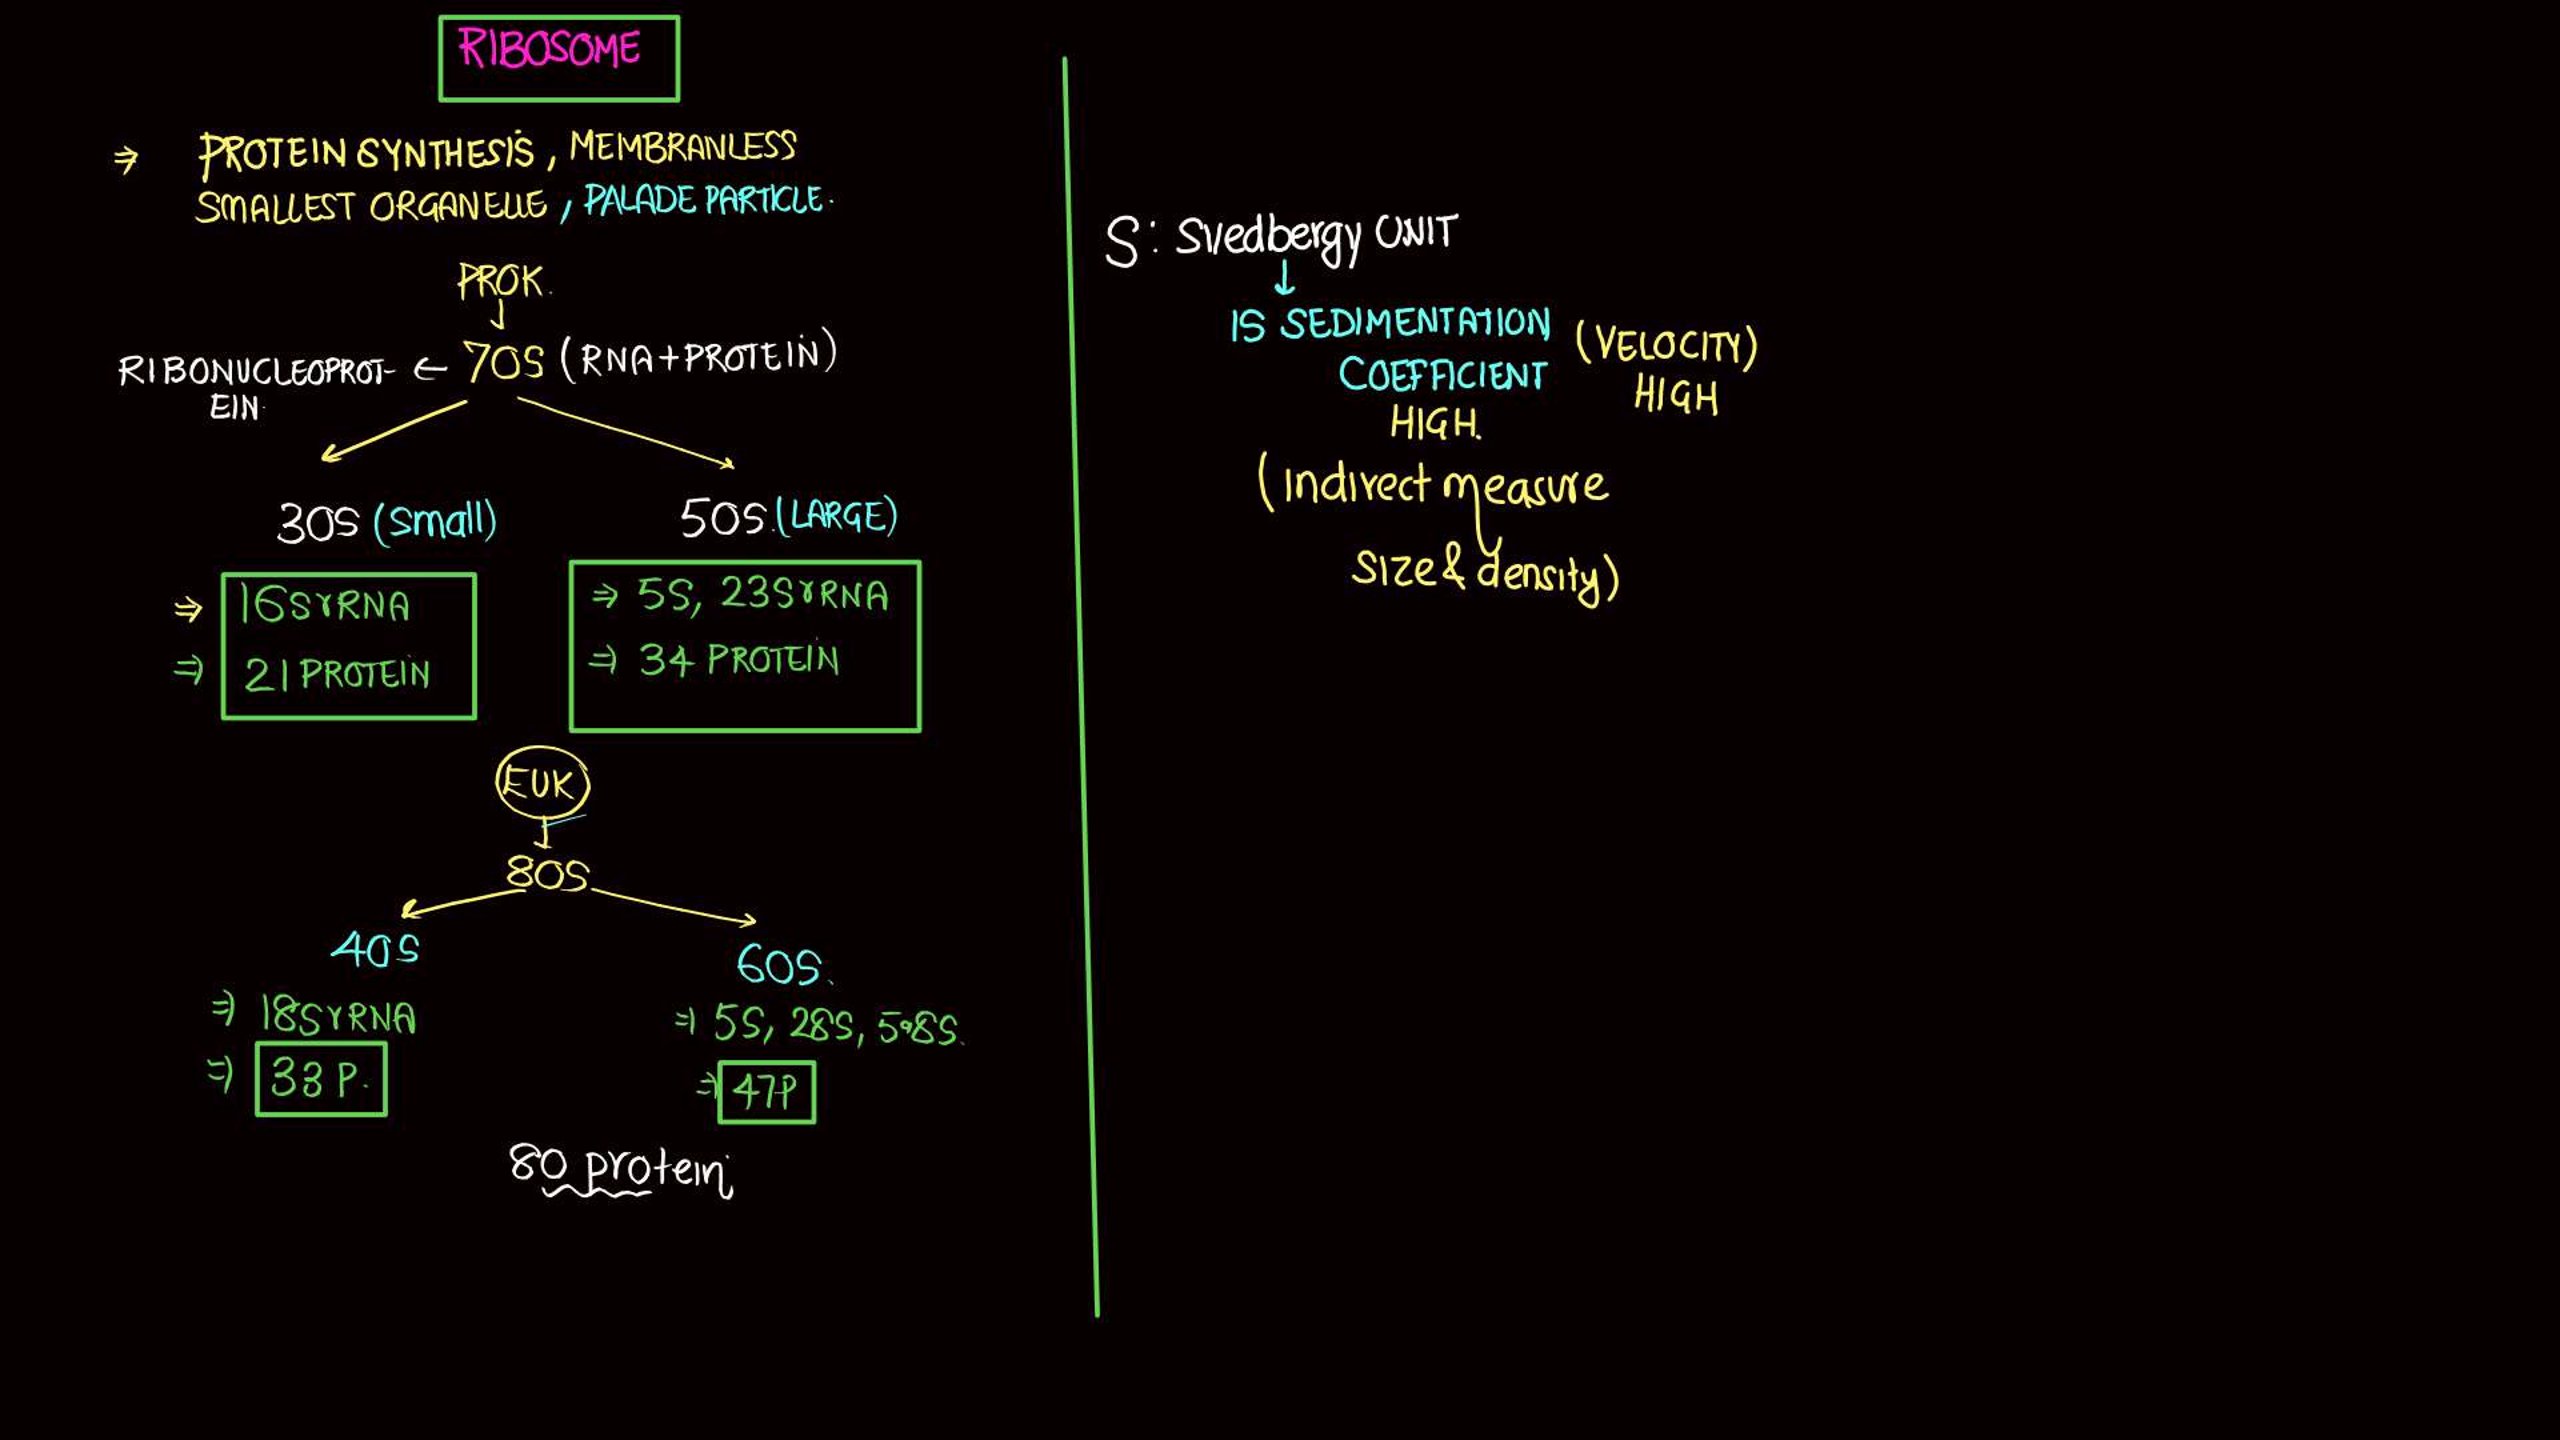 RIBOSOME
⇒ PROTEIN SYNTHESIS, MEMBRANLESS
SMALLEST ORGANELLE, PALADE PARTICLE.
PROK.
↓
RIBONUCLEOPROT- ← 70S (RNA+PROTEIN)
EIN.
30S (small) 50S.(LARGE)
⇒ 16SrRNA
⇒ 21 PROTEIN
⇒ 5S, 23SrRNA
⇒ 34 PROTEIN
EUK
↓
80S
40S 60S.
⇒ 18SrRNA
⇒ 33 P.
⇒ 5S, 28S, 5.8S.
⇒ 47P
80 protein
S: Svedbergy UNIT
↓
IS SEDIMENTATION (VELOCITY)
COEFFICIENT HIGH
HIGH.
(Indirect measure
size & density)